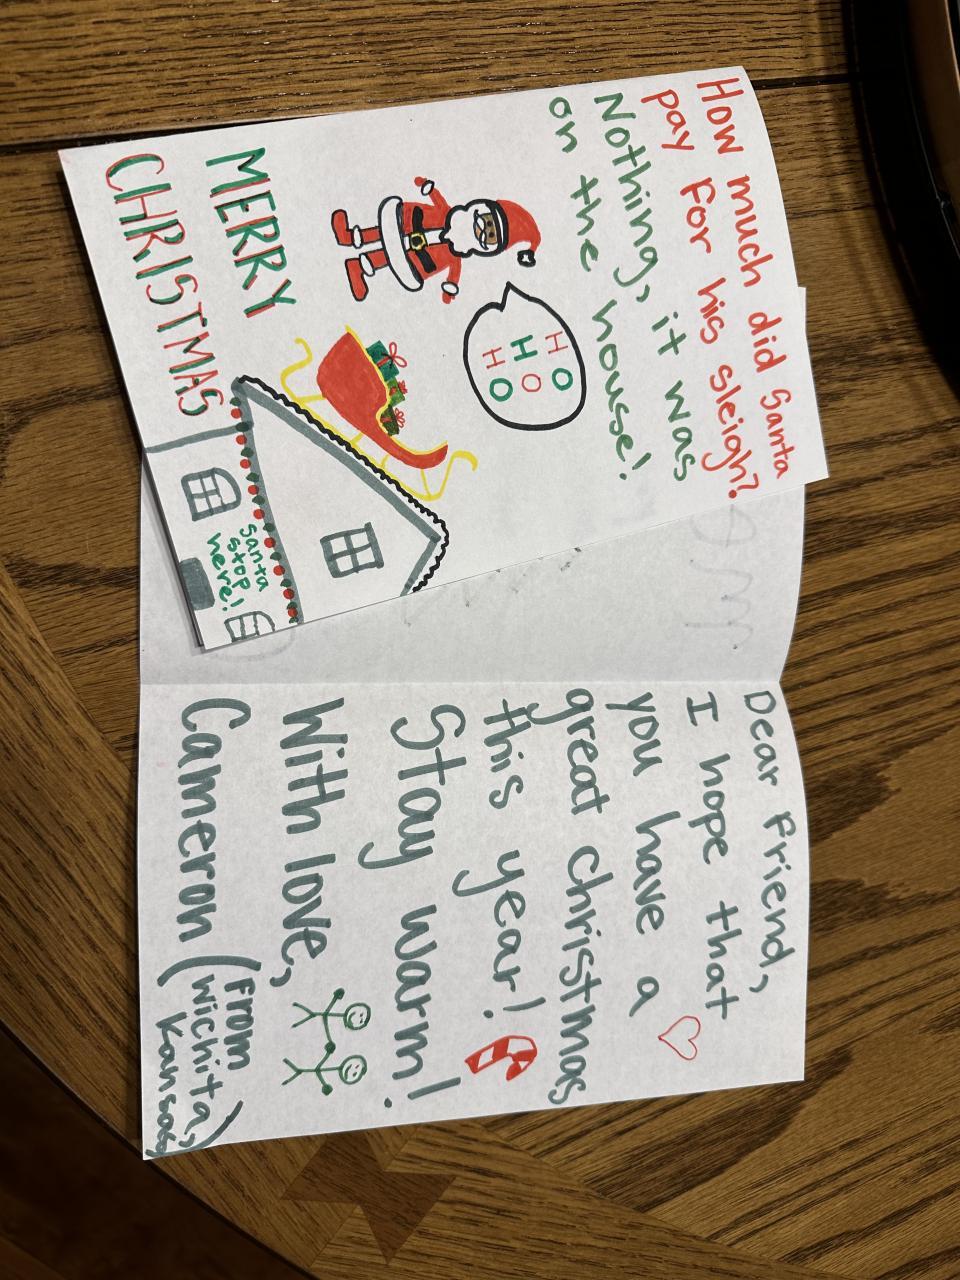 How much did Santa
pay for his sleigh?
Nothing, it was
on the house!
HO
HO
HO
MERRY
CHRISTMAS
Santa
stop
here!
Dear friend,
I hope that
you have a
great christmas
this year!
Stay warm!
With love,
Cameron (From
Wichita,
Kansas)